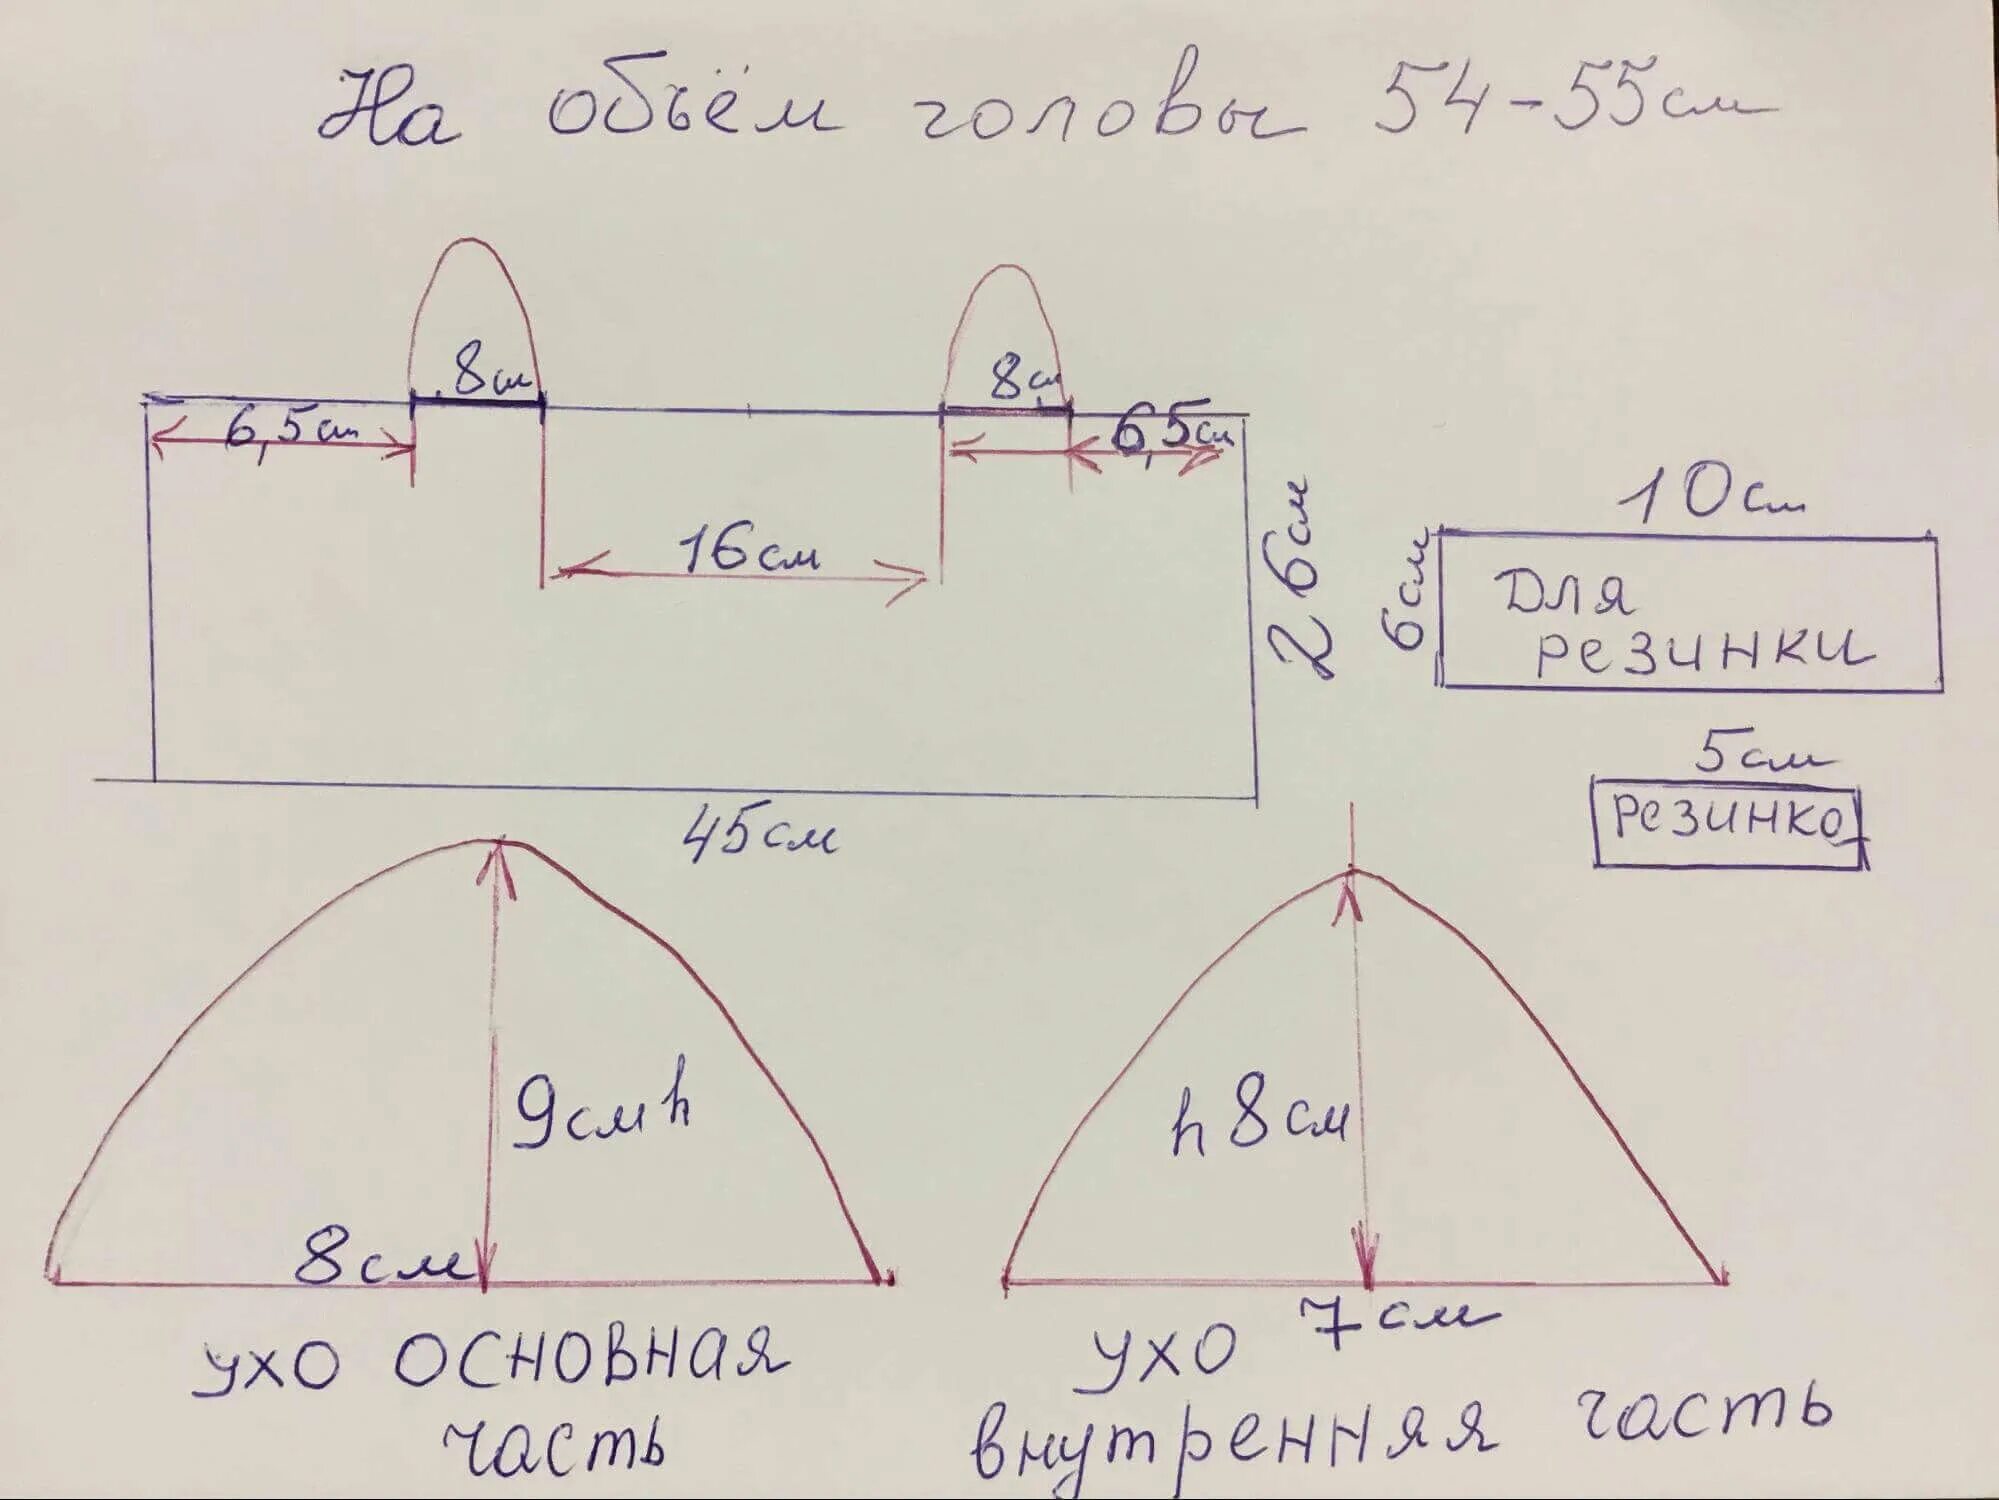 На объём головы 54-55см
8см
8см
6,5см
6,5см
16см
26см
45см
10см
6см
Для
резинки
5см
резинка
9см h
8см
h 8см
7см
ухо основная
часть
ухо
внутренняя часть